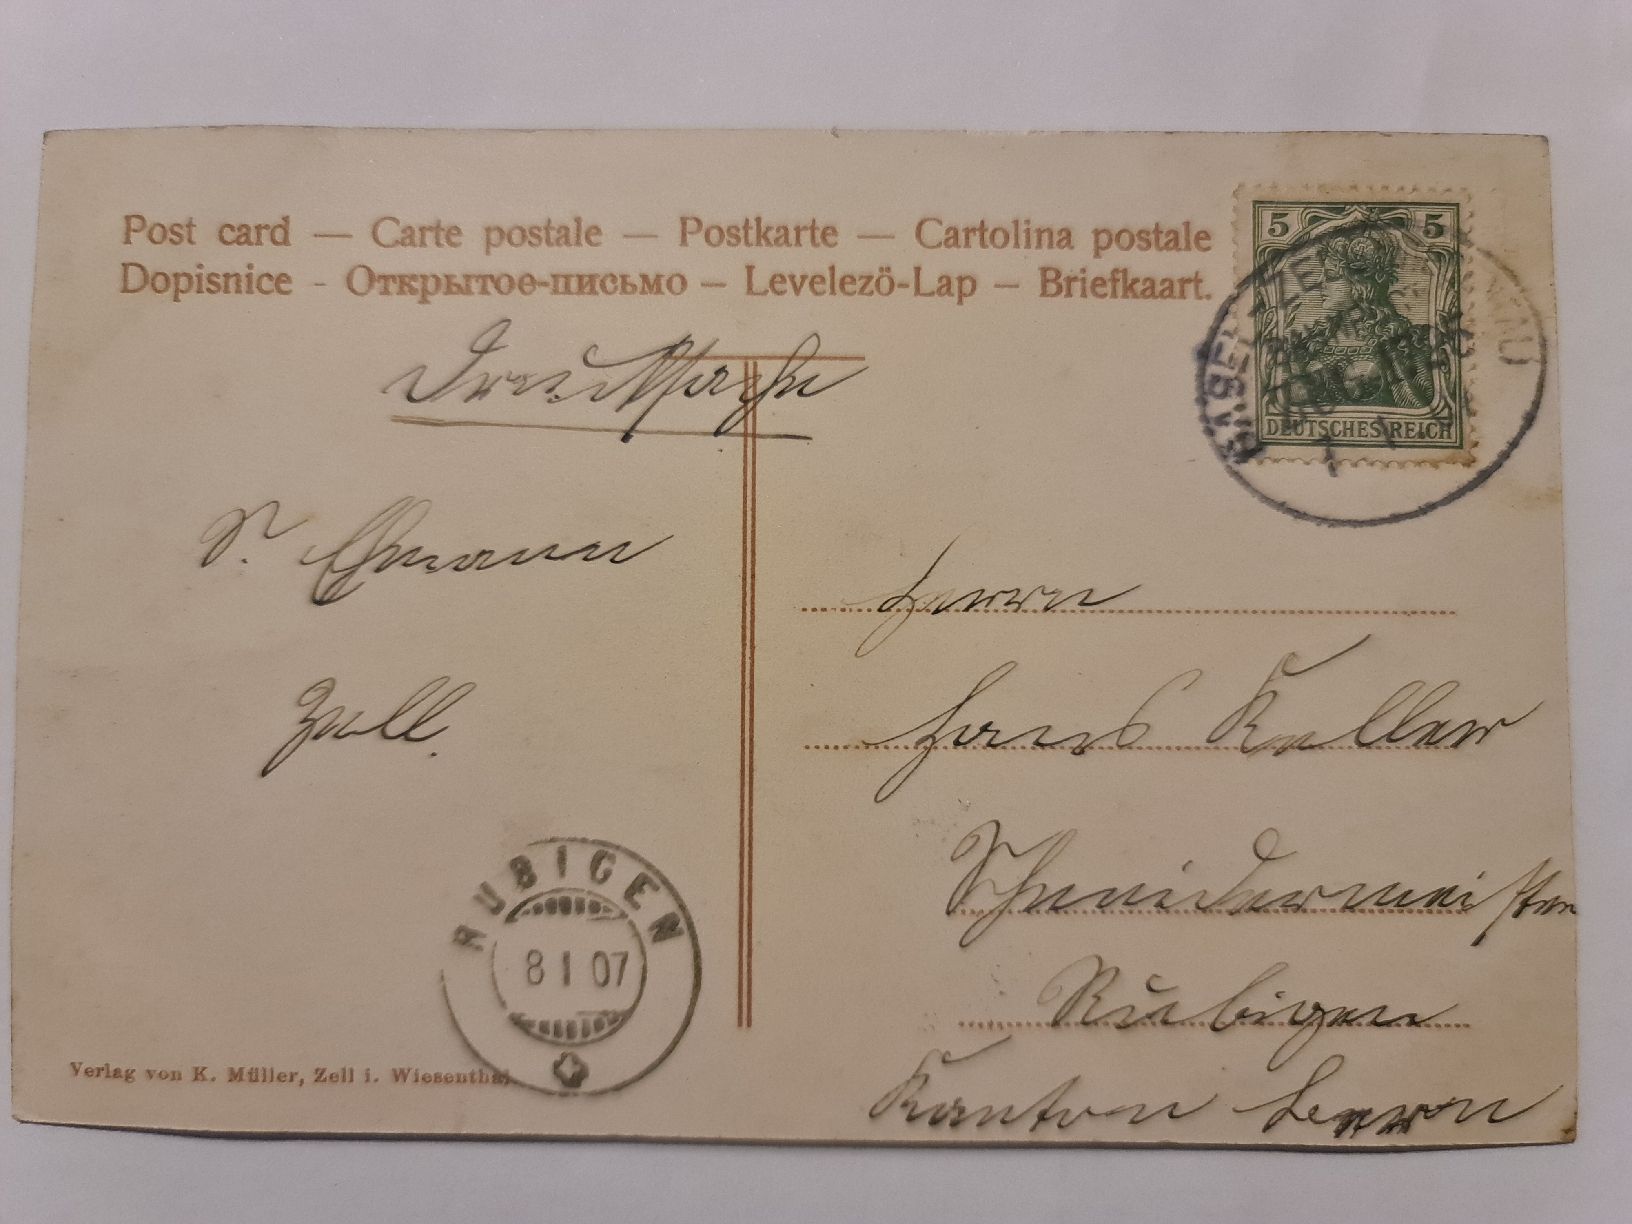 Post card — Carte postale — Postkarte — Cartolina postale
Dopisnice - Открытое-письмо — Levelezö-Lap — Briefkaart.
5 5
DEUTSCHES REICH
BASEL ZELL
Drucksache
S. Ehmann
Zell.
Herrn
Hans Keller
Schneidermeister
Rubigen
Kanton Bern
RUBIGEN
8 I 07
Verlag von K. Müller, Zell i. Wiesenthal